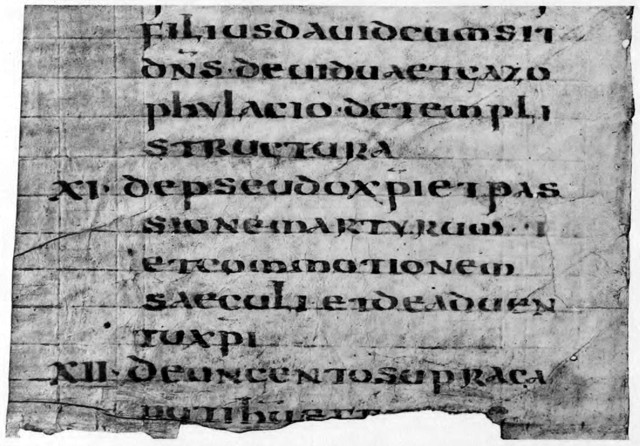 FILIUSDAUIDCUMSIT
DN̅S·DEUIDUAETGAZO
PHYLACIO·DETEMPLI
STRUCTURA
XI· DEPSEUDOXP̅IETPAS
SIONEMARTYRUM·
ETCOMMOTIONEM
SAECULI·ETDEADUEN
TUXPI
XII· DEUNGENTOSUPRACA